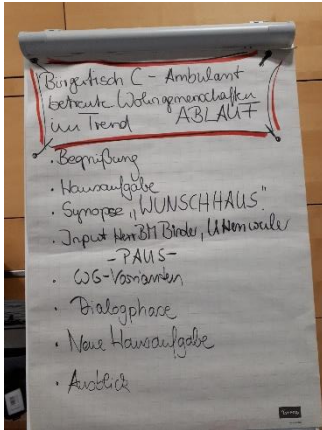 Bürgertisch C - Ambulant
betreute Wohngemeinschaften
im Trend ABLAUF
• Begrüßung
• Hausaufgabe
• Synopse „WUNSCHHAUS"
• Input Herr BM Binder, Uttenweiler
- PAUS -
• WG-Varianten
• Dialogphase
• Neue Hausaufgabe
• Ausblick